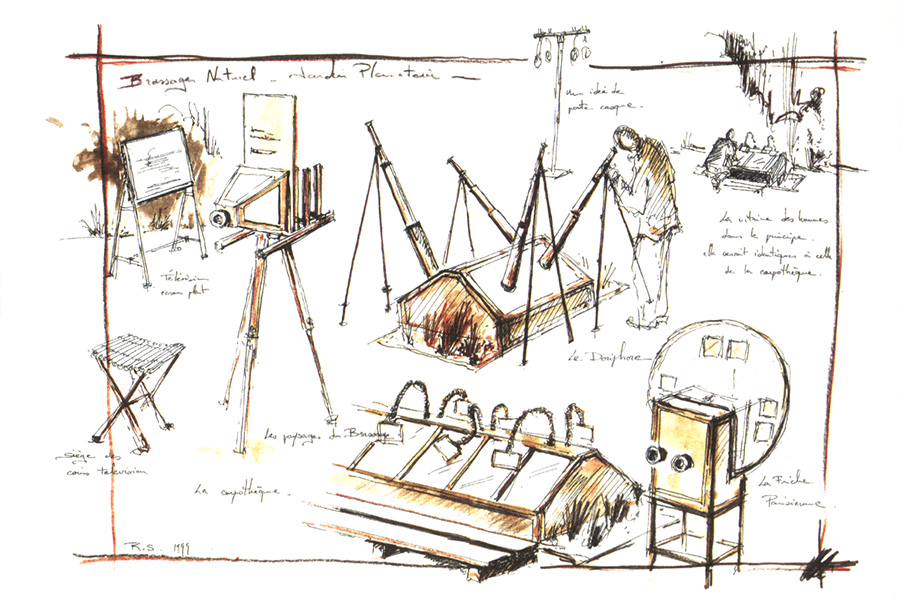 Brassage Naturel -
un idée de
porte casque.
La vitrine des
dans le principe.
elle serait identiques à celle
de la carpothèque.
Télévision
écran plat
Le Doriphore
Les paysages du Brassage
Siège des
coins télévision
La carpothèque.
La Friche
Parisienne
R.S. 1999